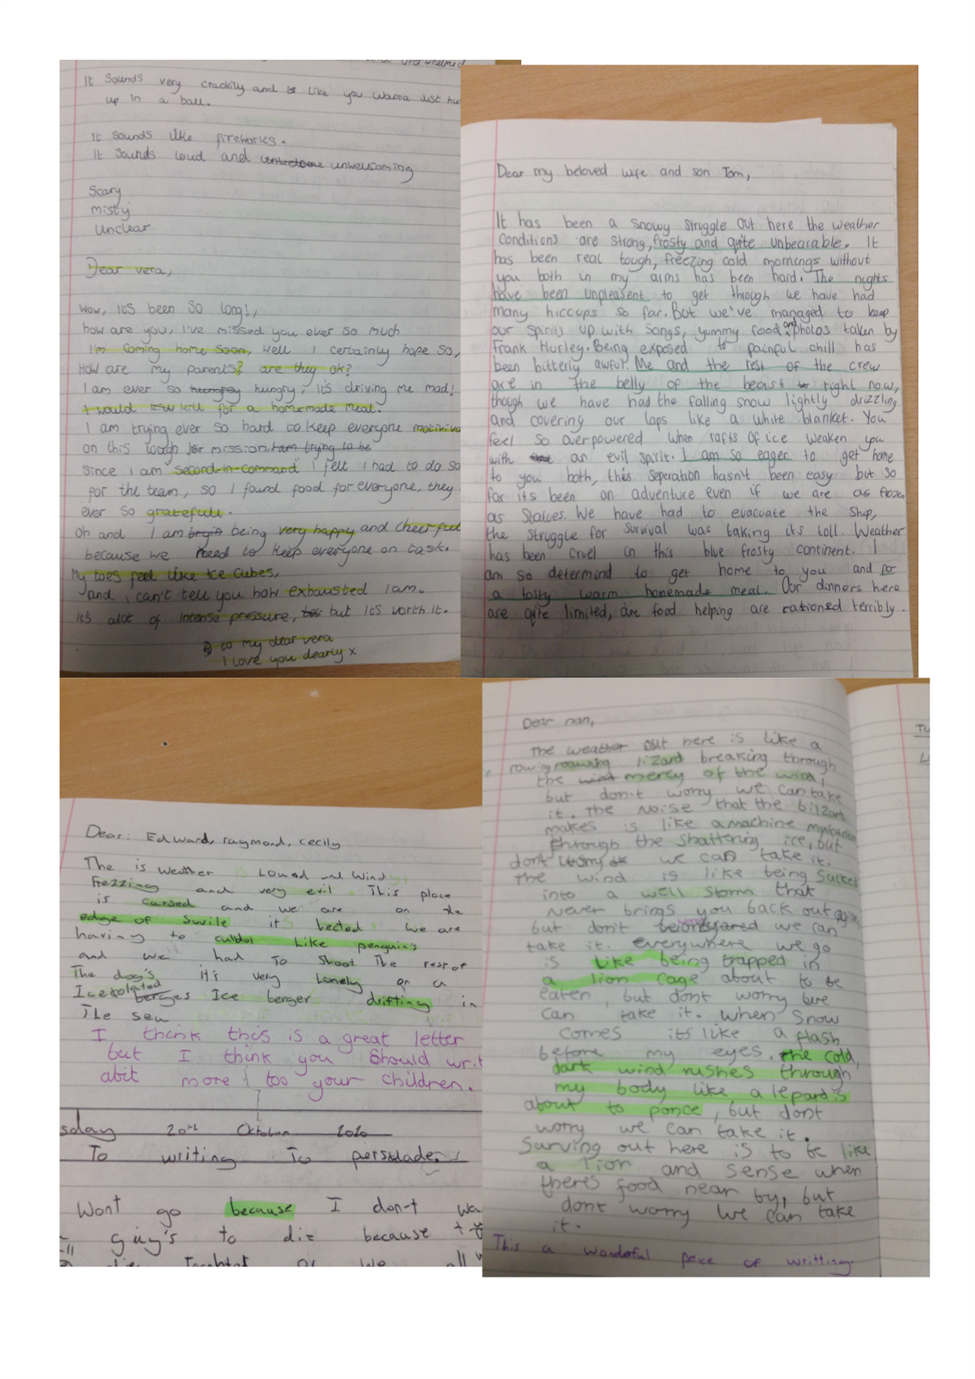 It sounds very crackily and like you wanna just hu
up in a ball.
It sounds like fireworks.
It sounds loud and unwelcoming
Scary
misty
unclear
Dear vera,
Wow, it's been so long!,
how are you, I've missed you ever so much
I'm coming home soon, well I certainly hope so,
How are my parents? are they ok?
I am ever so hungry, it's driving me mad!
I would kill for a homemade meal.
I am trying ever so hard to keep everyone
on this tough mission
since I am second-in-command I felt I had to do so
for the team, so I found food for everyone, they
ever so gratefull.
oh and I am being very happy and cheerfull
because we need to keep everyone on task.
My toes feel like ice cubes,
and i can't tell you how exhausted I am.
it's alot of intense pressure, but it's worth it.
to my dear vera
I love you dearly x
Dear my beloved wife and son Tom,
It has been a snowy struggle out here the weather
conditions are strong, frosty and quite unbearable. It
has been real tough, freezing cold mornings without
you both in my arms has been hard. The nights
have been unpleasent to get though we have had
many hiccups so far. But we've managed to keep
our spirits up with songs, yummy food and photos taken by
Frank Hurley. Being exposed to painful chill has
been bitterly awful. Me and the rest of the crew
are in the belly of the beast right now,
though we have had the falling snow lightly drizzling
and covering our laps like a white blanket. You
feel so overpowered when rafts of ice weaken you
with an evil spirit. I am so eager to get home
to you both, this seperation hasn't been easy but so
far its been an adventure even if we are as froze
as statues. We have had to evacuate the ship,
the struggle for survival was taking its toll. Weather
has been cruel in this blue frosty continent. I
am so determind to get home to you and for
a tasty warm homemade meal. Our dinners here
are qite limited, our food helping are rationed terribly.
Dear: Edward, raymond, cecily
The is weather is Loued and windy
frezzing and very evil. This place
is cursed and we are on the
edge of swile it hected we are
having to cuddol like penguins
and we had To shoot The rest of
The dog's it's very lonely on a
Icesolated Ice berger drifting in
The sea
I think this is a great letter
but I think you should writ
abit more to your children.
sday 20th October 2020
To writing To persuade.
Wont go because I don't wa
guy's to die because
Dear nan,
The weather out here is like a
lizard breaking through
the mercy of the wind,
but don't worry we can take
it. The noise that the blizard
makes is like a machine
through the shattering ice, but
dont worry we can take it.
the wind is like being sucked
into a well storm that
never brings you back out
but don't we can
take it. everywhere we go
is like being trapped in
a lion cage about to be
eaten, but dont worry we
can take it. when snow
comes it's like a flash
before my eyes. the cold,
dark wind rushes through
my body like a lepard is
about to ponce, but dont
worry we can take it.
Surving out here is to be like
a lion and sense when
theres food near by, but
dont worry we can take
it.
This a wonderful peice of writting